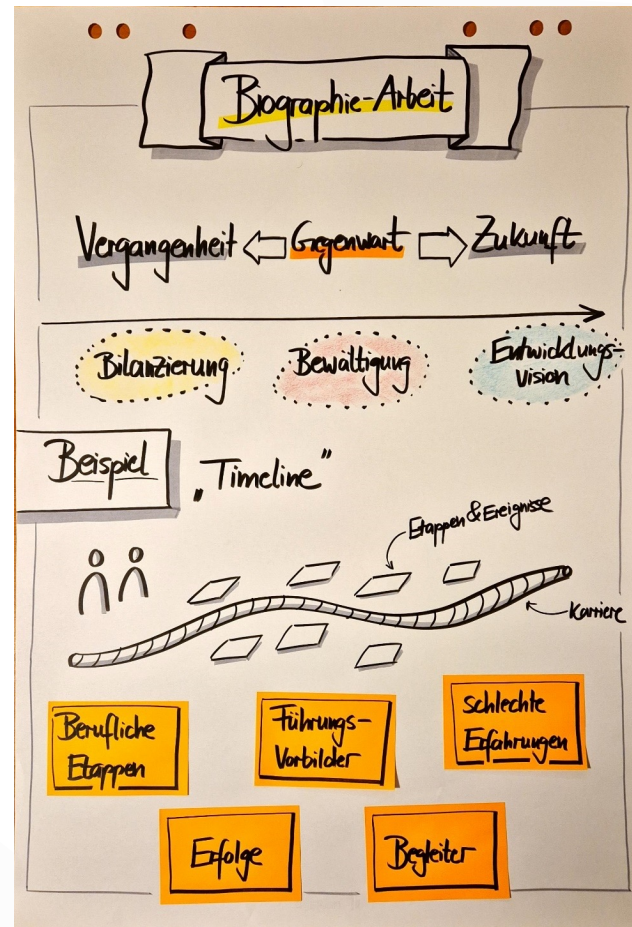 Biographie-Arbeit
Vergangenheit Gegenwart Zukunft
Bilanzierung
Bewältigung
Entwicklungs-
vision
Beispiel
„Timeline"
Etappen & Ereignisse
Karriere
Berufliche
Etappen
Führungs-
Vorbilder
Schlechte
Erfahrungen
Erfolge
Begleiter